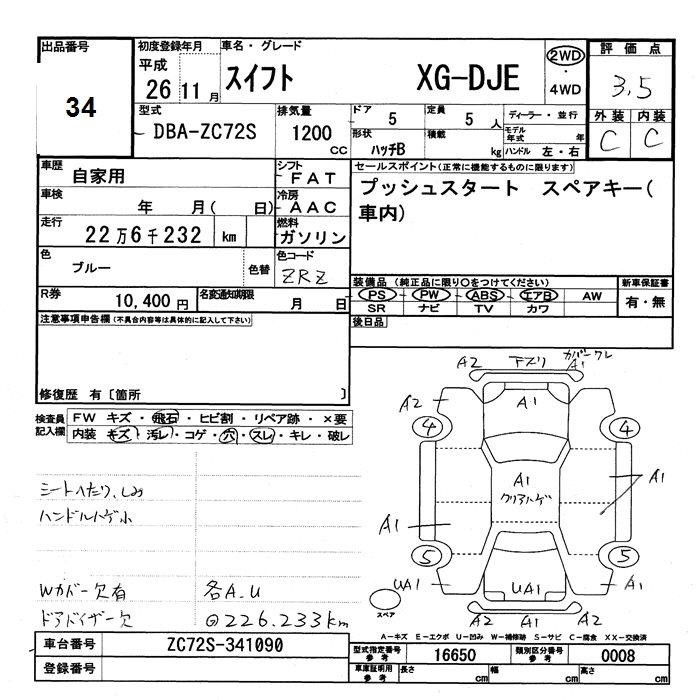 出品番号 初度登録年月 車名・グレード 2WD 評価点
34 平成 26 11月 スイフト XG-DJE ・ 4WD 3.5
型式 排気量 ドア 5 定員 5人 ディーラー・並行 外装 内装
DBA-ZC72S 1200 CC 形状 ハッチB 積載 kg モデル年式 年 ハンドル 左・右 C C
車歴 自家用 シフト FAT セールスポイント(正常に機能するものに限ります)
車検 年 月( 日) 冷房 AAC プッシュスタート スペアキー(
走行 22万6千232 km 燃料 ガソリン 車内)
色 ブルー 色替 色コード ZRZ
装備品 (純正品に限り○をつけてください) 新車保証書
R券 10,400円 名変通知期限 月 日 PS PW ABS エアB AW 有・無
SR ナビ TV カワ
注意事項申告欄(不具合内容等は具体的に記入して下さい) 後日品
修復歴 有〔箇所 〕
検査員記入欄 FW キズ・飛石・ヒビ割・リペア跡・×要
内装 キズ・汚レ・コゲ・穴・スレ・キレ・破レ
A2 下ズリ カバーワレ A1
A2 A1
4 4
シートへたり、しみ A1 クリアハゲ A1
ハンドルハゲ小 A1
5 5
Wカバー欠有 各A.U UA1 UA1 A1
ドアバイザー欠 226.233km スペア A2 A1 A1 A2
A-キズ E-エクボ U-凹み W-補修跡 S-サビ C-腐食 XX-交換済
車台番号 ZC72S-341090 型式指定番号 参考 16650 類別区分番号 参考 0008
登録番号 車庫証明用 参考 長さ cm 幅 cm 高さ cm